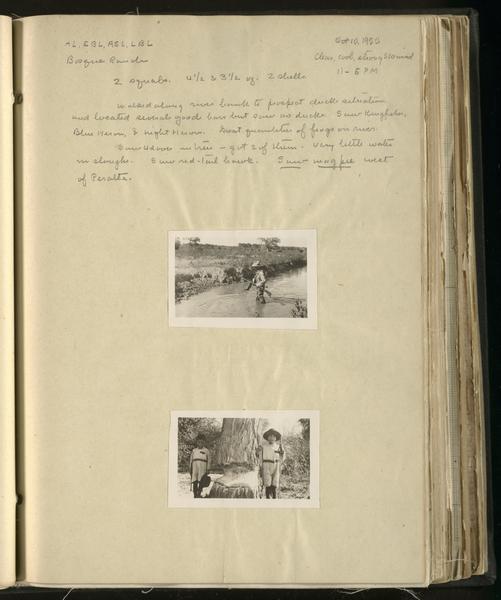 AL, EBL, ASL, LBL
Oct 10, 1920
Bosque Ranch
Clear, cool, strong S wind
11 - 5 PM
2 squabs. 4 1/2 & 3 1/2 oz. 2 shells
Walked along river bank to prospect duck situation
and located several good bars but saw no ducks. Saw Kingfisher,
Blue Heron, & Night Heron. Great quantities of frogs on river.
Saw 4 doves in tree - got 2 of them. Very little water
in sloughs. Saw red-tail hawk. Saw magpie west
of Peralta.